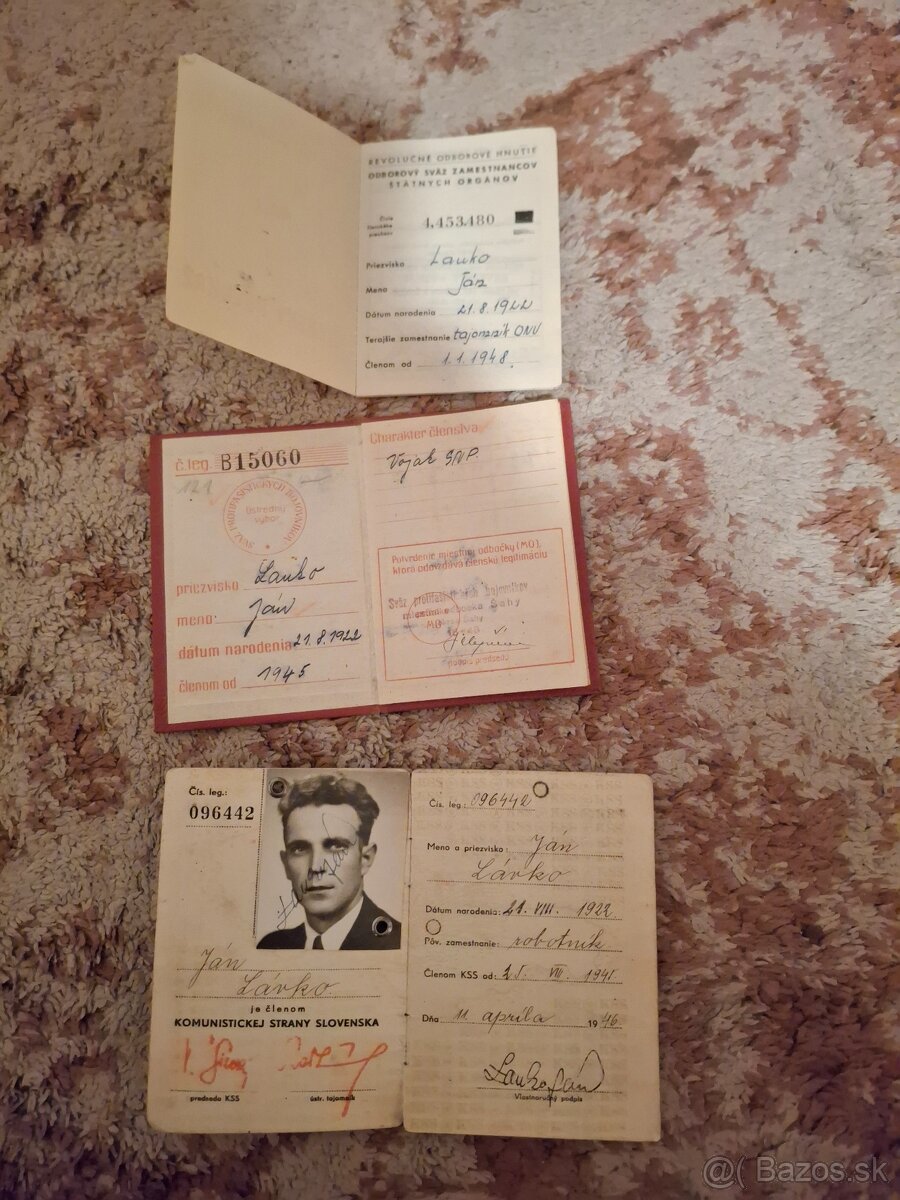 REVOLUČNÉ ODBOROVÉ HNUTIE
ODBOROVÝ SVÄZ ZAMESTNANCOV
ŠTÁTNYCH ORGÁNOV
Číslo
členského
preukazu
4,453.480
Priezvisko Lauko
Meno Ján
Dátum narodenia 21.8.1922
Terajšie zamestnanie tajomník ONV
Členom od 1.1.1948.
č. leg. B15060
121
SVÄZ PROTIFAŠISTICKÝCH BOJOVNÍKOV
ústredný
výbor
priezvisko Lauko
meno: Ján
dátum narodenia 21.8.1922
členom od 1945
Charakter členstva
Vojak SNP.
Potvrdenie miestnej odbočky (MO),
ktorá odovzdáva členskú legitimáciu
Sväz protifašistických bojovníkov
miestna odbočka Šahy
MO
podpis predsedu
Čís. leg.:
096442
Ján
Lávko
je členom
KOMUNISTICKEJ STRANY SLOVENSKA
predseda KSS ústr. tajomník
Čís. leg.: 096442
Meno a priezvisko: Ján
Lávko
Dátum narodenia: 21. VIII. 1922
Pôv. zamestnanie: robotník
Členom KSS od: VII. 1945
Dňa 11 apríla 1946
Lauko Ján
Vlastnoručný podpis
@( Bazos.sk